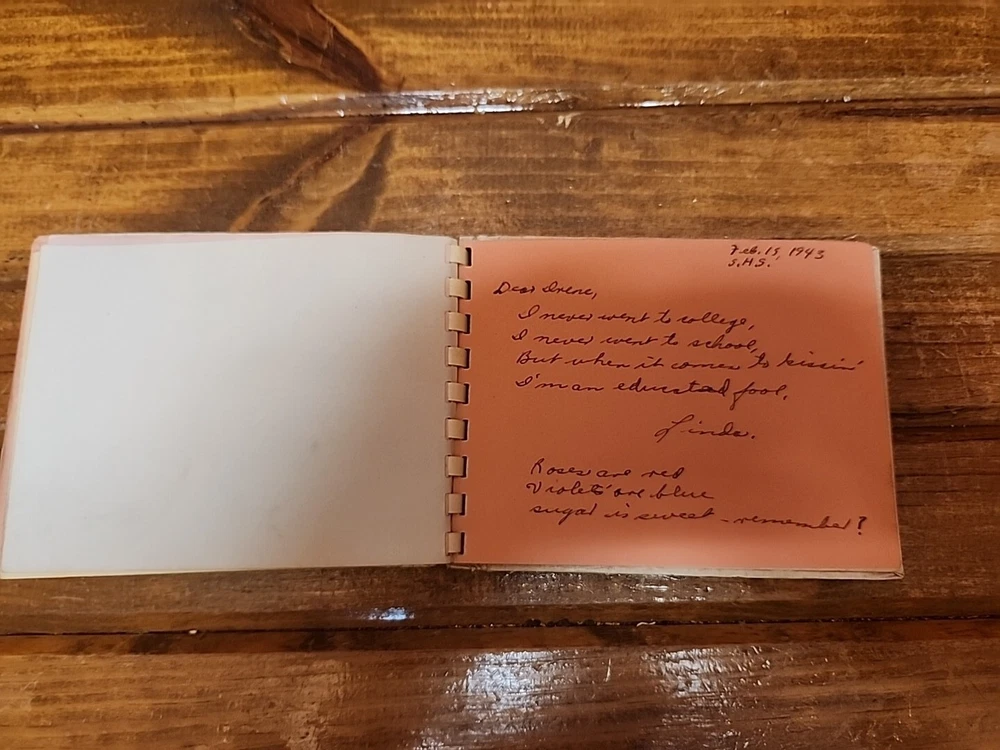 Feb. 15, 1943
S.H.S.
Dear Irene,
I never went to college,
I never went to school,
But when it comes to kissin'
I'm an educated fool.
Linda.
Roses are red
Violets are blue
sugar is sweet - remember?